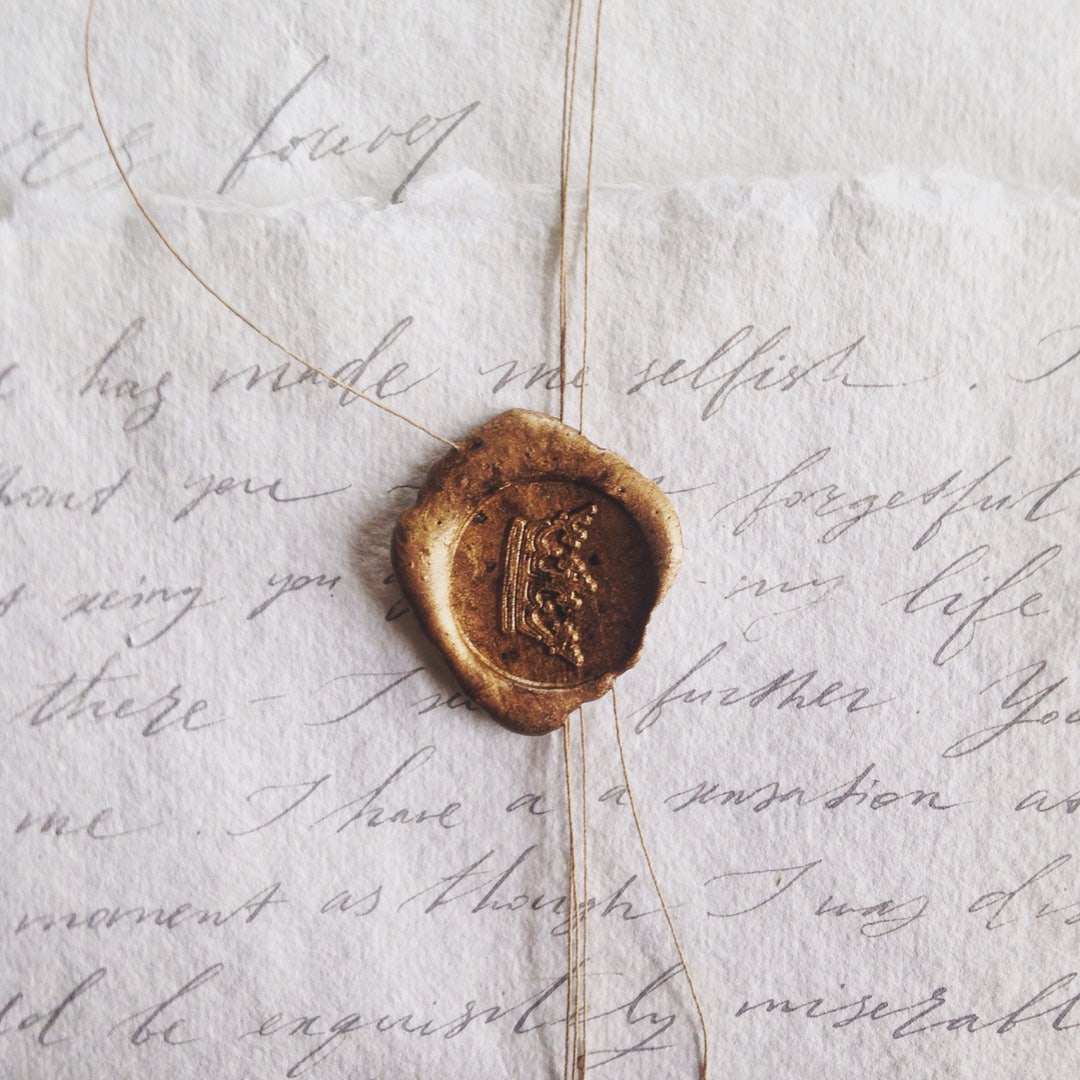 forever
has made me selfish. I
you forgetful
seing you my life
there - I see further You
me. I have a a sensation as
moment as though I was dis
be exquisitely miserabl